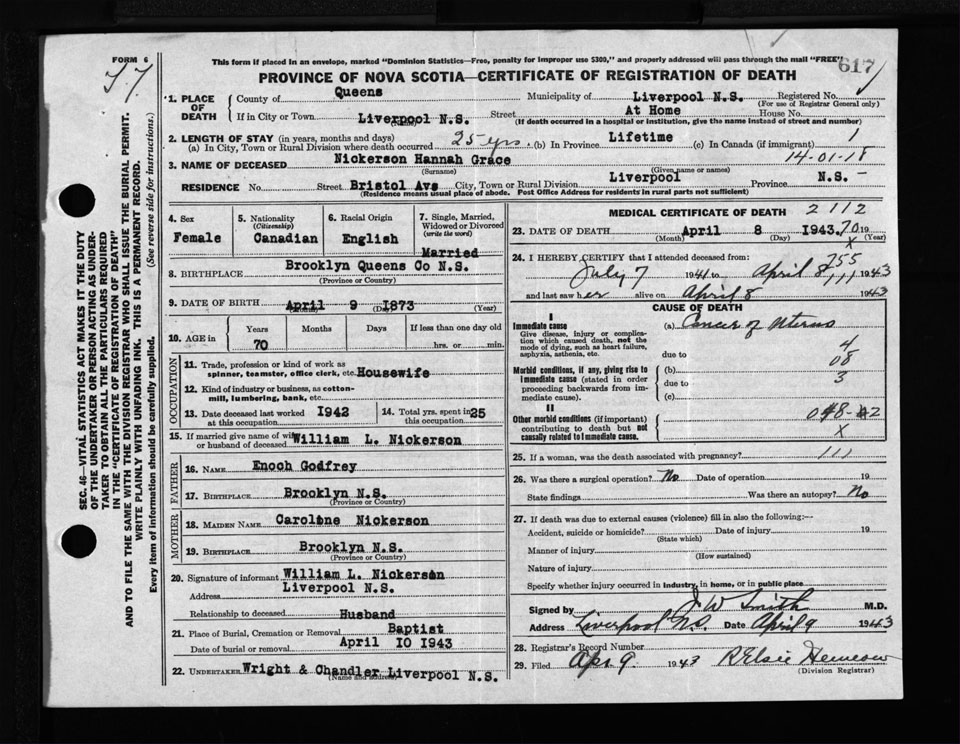 FORM 6
This form if placed in an envelope, marked "Dominion Statistics—Free, penalty for improper use $300," and properly addressed will pass through the mail "FREE"
617
PROVINCE OF NOVA SCOTIA—CERTIFICATE OF REGISTRATION OF DEATH
1. PLACE OF DEATH
County of Queens Municipality of Liverpool N.S. Registered No.
(For use of Registrar General only)
If in City or Town Liverpool N.S. Street At Home House No.
(If death occurred in a hospital or institution, give the name instead of street and number)
2. LENGTH OF STAY (in years, months and days)
(a) In City, Town or Rural Division where death occurred 25 yrs. (b) In Province Lifetime (c) In Canada (if immigrant) 1
14-01-18
3. NAME OF DECEASED Nickerson Hannah Grace
(Surname) (Given name or names)
RESIDENCE No. Street Bristol Ave City, Town or Rural Division Liverpool Province N.S.
(Residence means usual place of abode. Post Office Address for residents in rural parts not sufficient)
4. Sex
Female
5. Nationality (Citizenship)
Canadian
6. Racial Origin
English
7. Single, Married, Widowed or Divorced (write the word)
Married
8. BIRTHPLACE Brooklyn Queens Co N.S.
(Province or Country)
9. DATE OF BIRTH April 9 1873
(Month) (Day) (Year)
10. AGE in
Years Months Days If less than one day old
70 hrs. or min.
OCCUPATION
11. Trade, profession or kind of work as spinner, teamster, office clerk, etc. Housewife
12. Kind of industry or business, as cotton-mill, lumbering, bank, etc.
13. Date deceased last worked at this occupation 1942
14. Total yrs. spent in this occupation 25
15. If married give name of wife or husband of deceased William L. Nickerson
FATHER
16. NAME Enoch Godfrey
17. BIRTHPLACE Brooklyn N.S.
(Province or Country)
MOTHER
18. MAIDEN NAME Caroline Nickerson
19. BIRTHPLACE Brooklyn N.S.
(Province or Country)
20. Signature of informant William L. Nickerson
Address Liverpool N.S.
Relationship to deceased Husband
21. Place of Burial, Cremation or Removal Baptist
Date of burial or removal April 10 1943
22. UNDERTAKER Wright & Chandler Liverpool N.S.
(Name and Address)
MEDICAL CERTIFICATE OF DEATH 2112
23. DATE OF DEATH April 8 1943. 70 19
(Month) (Day) (Year)
X
24. I HEREBY CERTIFY that I attended deceased from: 755
July 7 1941 to April 8 1943
111
and last saw her alive on April 8 1943
CAUSE OF DEATH
I
Immediate cause
Give disease, injury or complication which caused death, not the mode of dying, such as heart failure, asphyxia, asthenia, etc.
(a) Cancer of Uterus
due to 4
Morbid conditions, if any, giving rise to immediate cause (stated in order proceeding backwards from immediate cause).
(b) 08
due to 3
(c)
II
Other morbid conditions (if important) contributing to death but not causally related to immediate cause.
X
25. If a woman, was the death associated with pregnancy? 111
26. Was there a surgical operation? No Date of operation 19
State findings Was there an autopsy? No
27. If death was due to external causes (violence) fill in also the following:—
Accident, suicide or homicide? Date of injury 19
(State which)
Manner of injury
(How sustained)
Nature of injury
Specify whether injury occurred in industry, in home, or in public place
Signed by J W Smith M.D.
Address Liverpool N.S. Date April 9 1943
28. Registrar's Record Number
29. Filed Apr 9. 1943 R Elsie
(Division Registrar)
SEC. 46—VITAL STATISTICS ACT MAKES IT THE DUTY
OF THE UNDERTAKER OR PERSON ACTING AS UNDER-
TAKER TO OBTAIN ALL THE PARTICULARS REQUIRED
IN THE "CERTIFICATE OF REGISTRATION OF DEATH"
AND TO FILE THE SAME WITH THE DIVISION REGISTRAR WHO SHALL ISSUE THE BURIAL PERMIT.
WRITE PLAINLY WITH UNFADING INK. THIS IS A PERMANENT RECORD.
Every item of information should be carefully supplied. (See reverse side for instructions.)